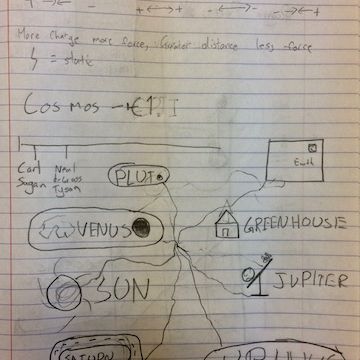 More Charge more force, Greater distance less force
= static
Cosmos
Carl
Sagan
Neal
degrass
Tyson
PLUTO
Earth
VENUS
GREENHOUSE
SUN
JUPITER
SATURN